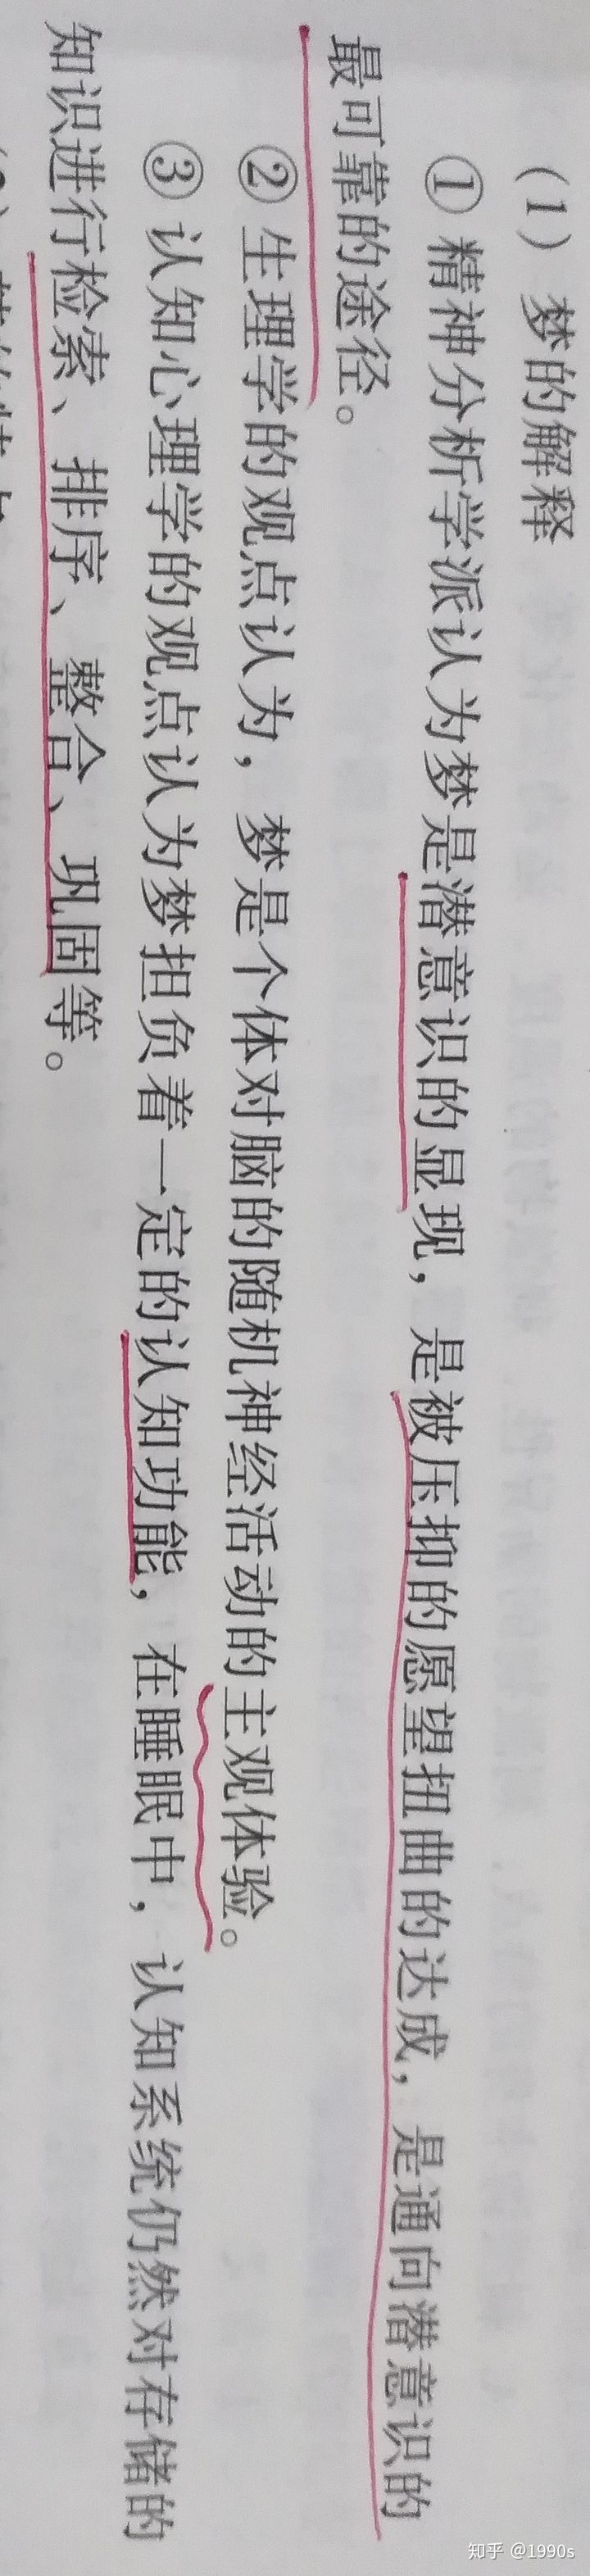 （1）梦的解释
① 精神分析学派认为梦是潜意识的显现，是被压抑的愿望扭曲的达成，是通向潜意识的
最可靠的途径。
② 生理学的观点认为，梦是个体对脑的随机神经活动的主观体验。
③ 认知心理学的观点认为梦担负着一定的认知功能，在睡眠中，认知系统仍然对存储的
知识进行检索、排序、整合、巩固等。
知乎 @1990s